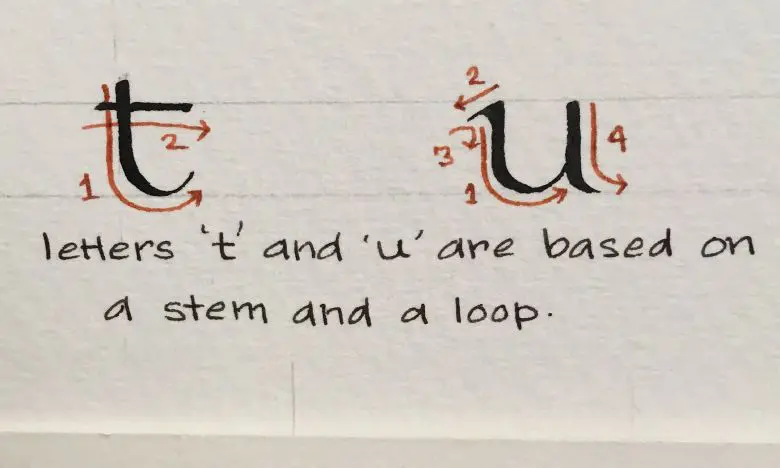 t u
1 2 2 3 1 4
letters 't' and 'u' are based on
a stem and a loop.